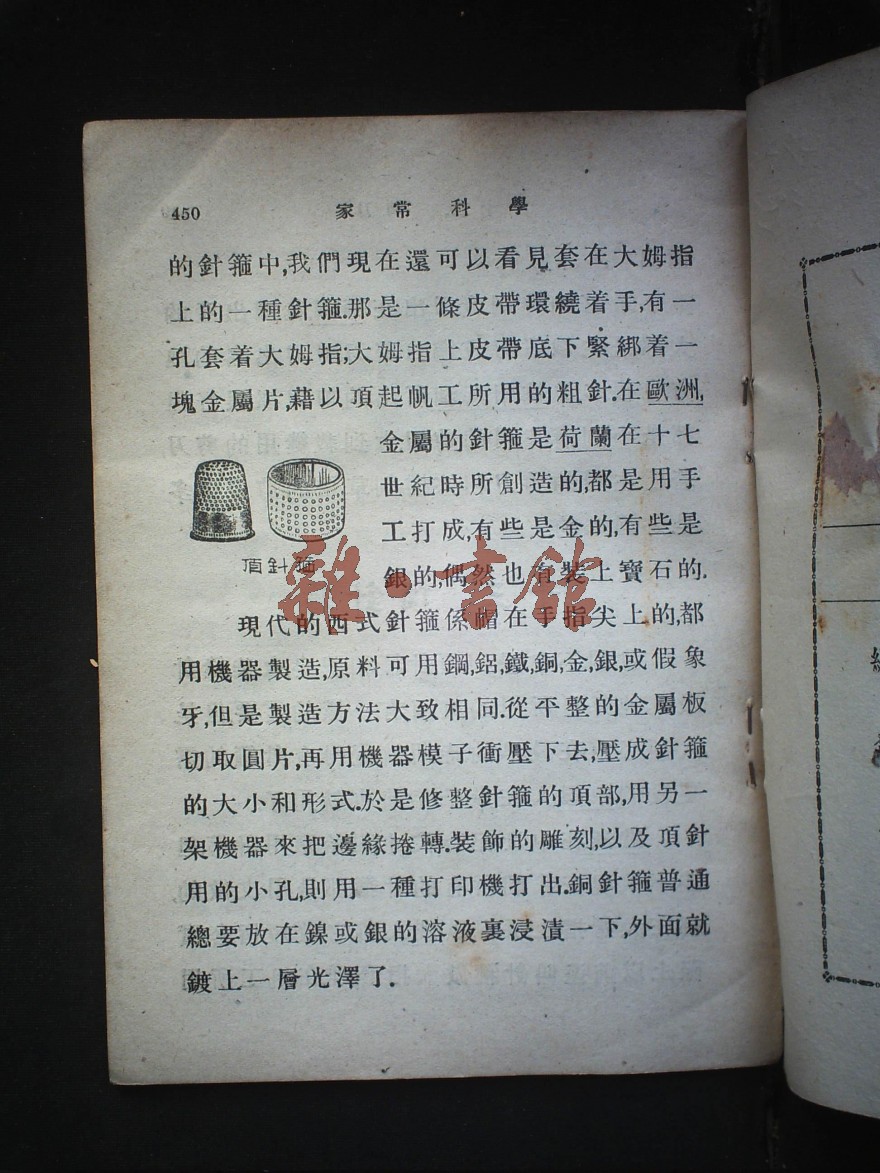 450 家常科學
的針箍中,我們現在還可以看見套在大姆指
上的一種針箍.那是一條皮帶環繞着手,有一
孔套着大姆指;大姆指上皮帶底下緊綁着一
塊金屬片,藉以頂起帆工所用的粗針.在歐洲,
金屬的針箍是荷蘭在十七
世紀時所創造的,都是用手
工打成,有些是金的,有些是
銀的,偶然也有裝上寶石的.
頂針箍
雜·書館
現代的西式針箍係帽在手指尖上的,都
用機器製造,原料可用鋼,鋁,鐵,銅,金,銀,或假象
牙,但是製造方法大致相同.從平整的金屬板
切取圓片,再用機器模子衝壓下去,壓成針箍
的大小和形式.於是修整針箍的頂部,用另一
架機器來把邊緣捲轉.裝飾的雕刻,以及頂針
用的小孔,則用一種打印機打出.銅針箍普通
總要放在鎳或銀的溶液裏浸漬一下,外面就
鍍上一層光澤了.